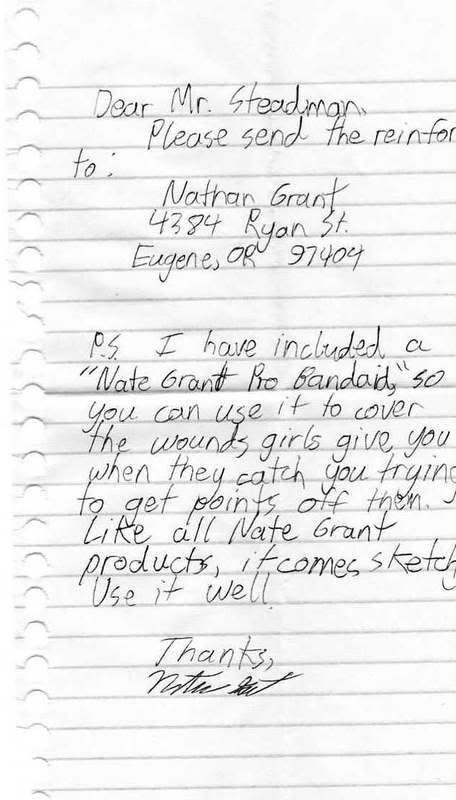 Dear Mr. Steadman,
Please send the reinfor
to:
Nathan Grant
4384 Ryan St.
Eugene, OR 97404
P.S. I have included a
"Nate Grant Pro Bandaid," so
you can use it to cover
the wounds girls give you
when they catch you trying
to get points off them.
Like all Nate Grant
products, it comes sketch
Use it well.
Thanks,